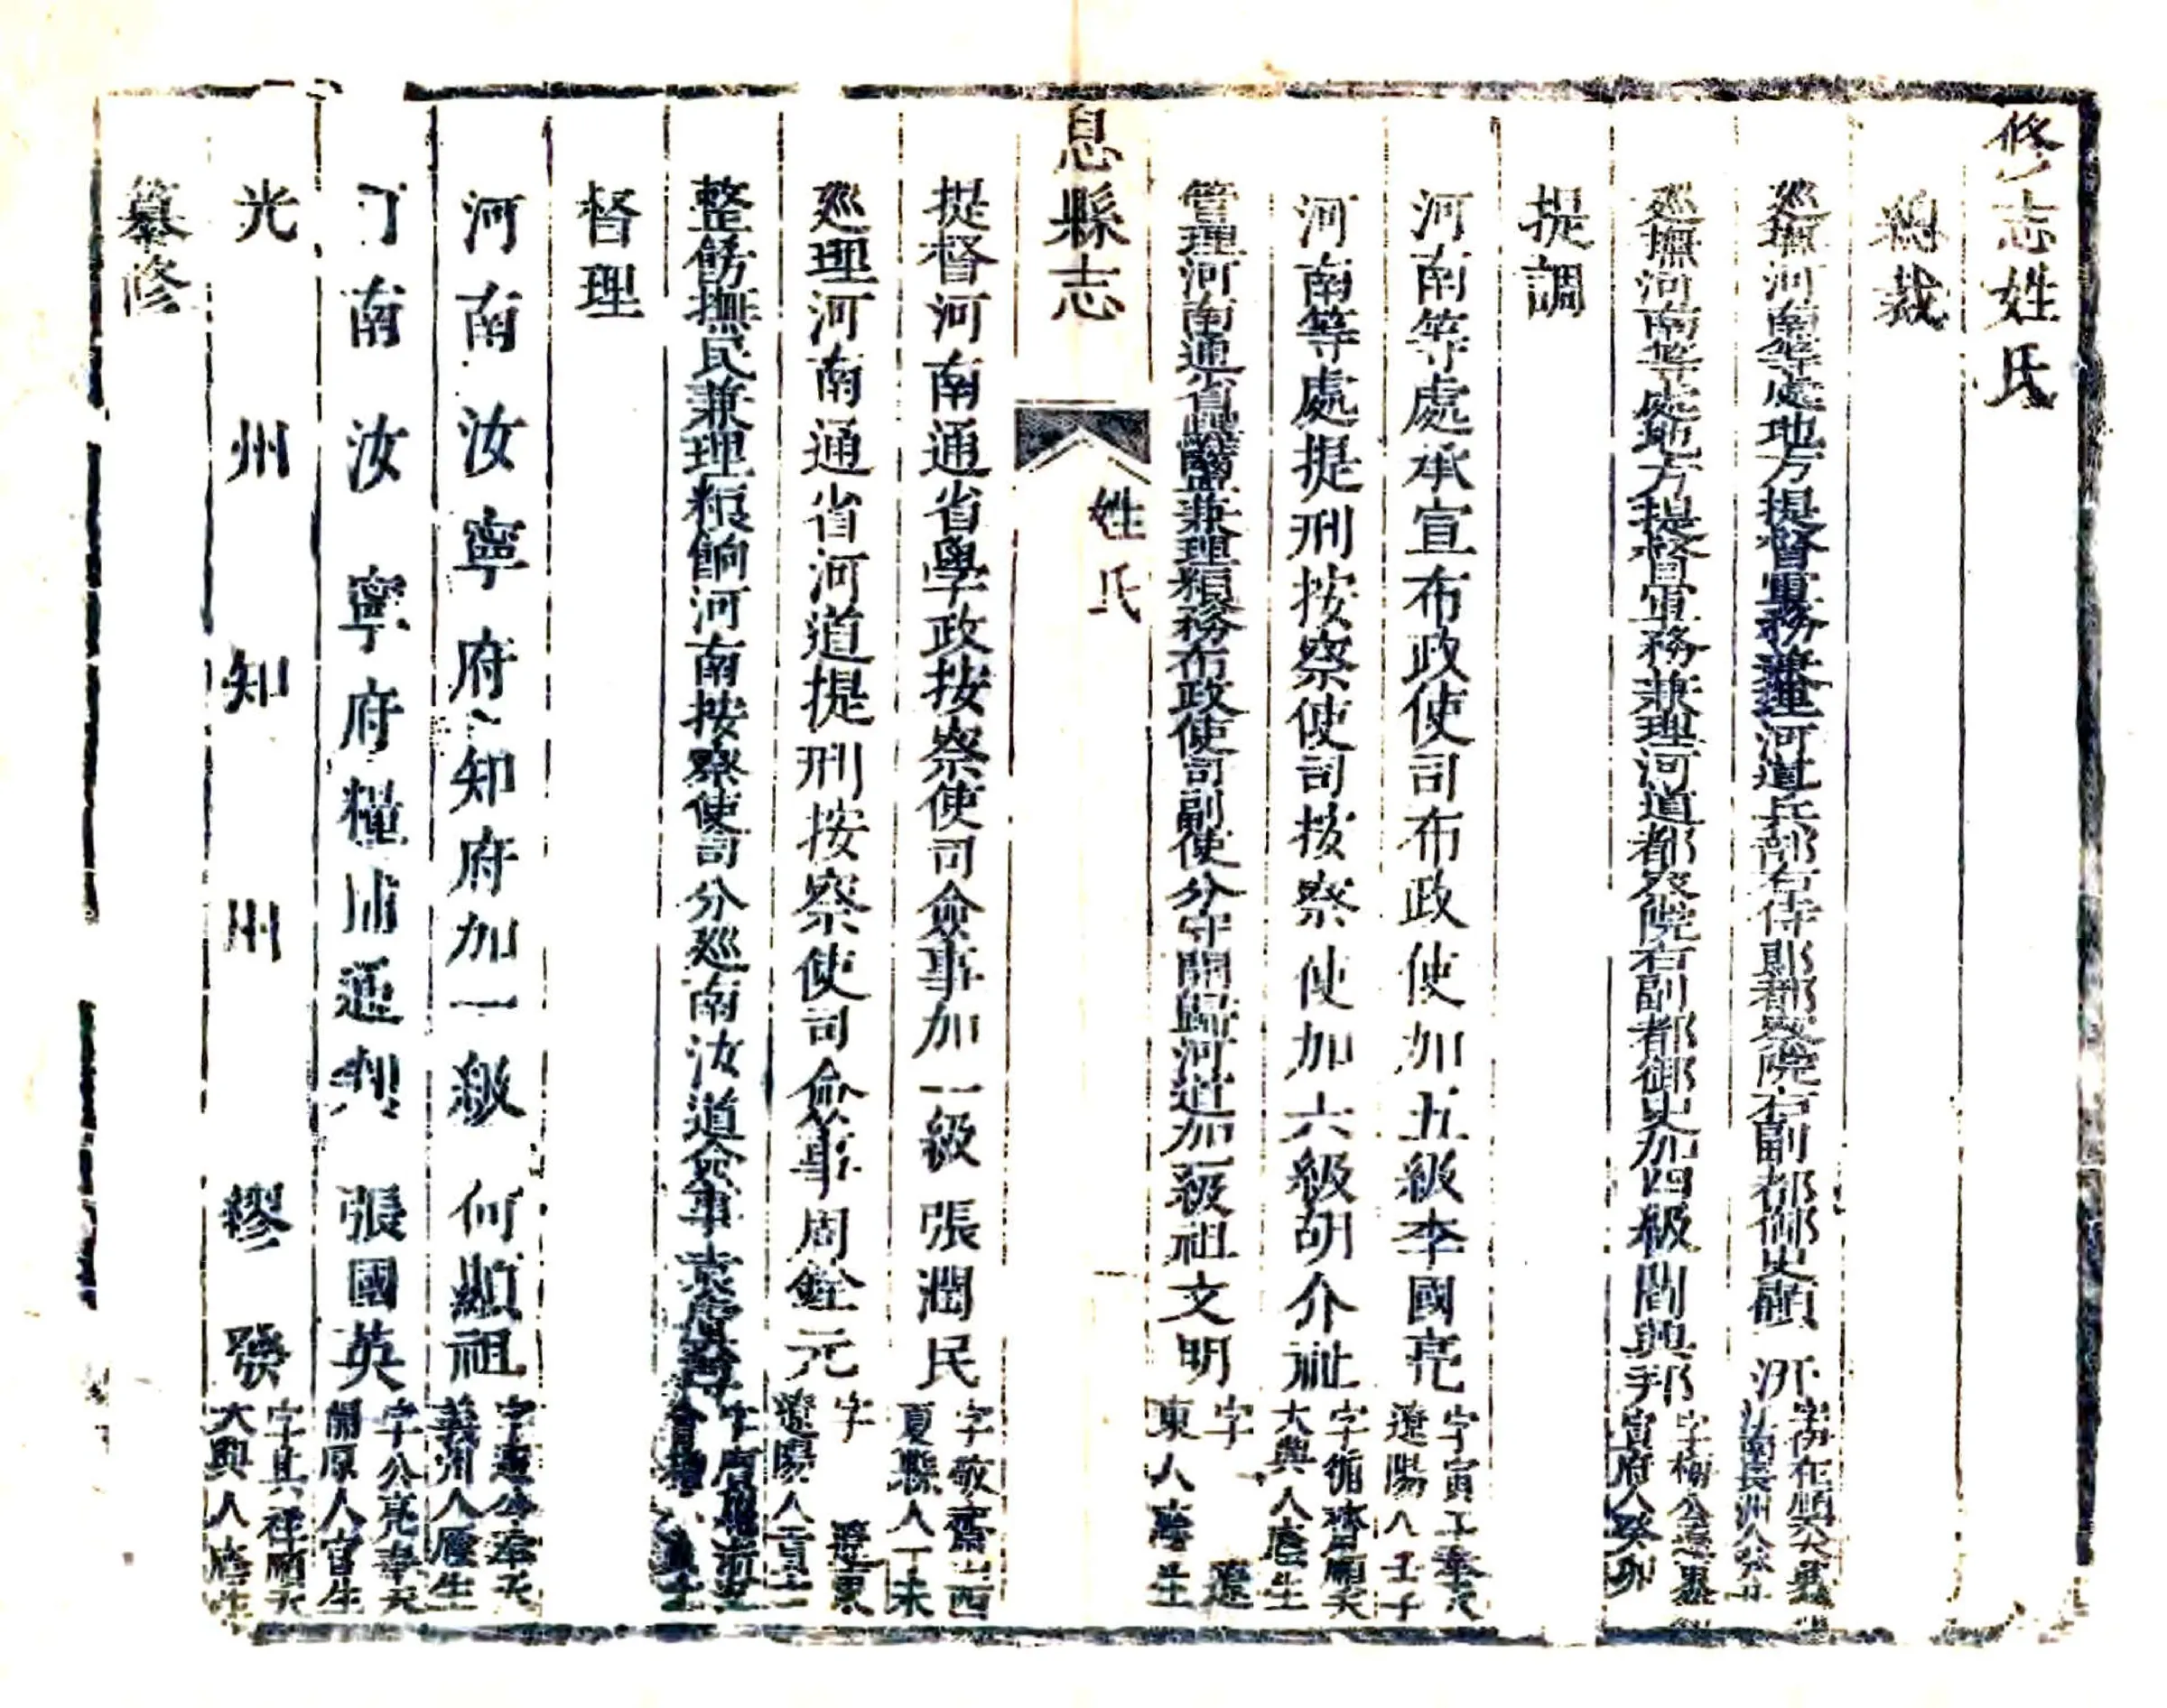 修志姓氏
總裁
巡撫河南等處地方提督軍務兼理河道兵部右侍郎都察院右副都御史顧汧
巡撫河南等處地方提督軍務兼理河道都察院右副都御史加四級閻興邦
字梅公
宣府人癸卯
提調
河南等處承宣布政使司布政使加五級李國亮
字寅工奉天
遼陽人壬子
河南等處提刑按察使司按察使加六級胡介祉
字循齋順天
大興人廕生
管理河南通省驛鹽兼理糧務布政使司副使分守開歸河道加一級祖文明
字 遼
東人廕生
息縣志
姓氏
提督河南通省學政按察使司僉事加一級張潤民
字敬齋山西
夏縣人丁未
巡理河南通省河道提刑按察使司僉事周銓元
字 遼東
遼陽人貢士
整飭撫民兼理糧餉河南按察使司分巡南汝道僉事
督理
河南汝寧府知府加一級何顯祖
字 公奉天
義州人廕生
河南汝寧府糧捕通判張國英
字公亮奉天
開原人官生
光州知州繆發
字其祥順天
大興人廕生
纂修